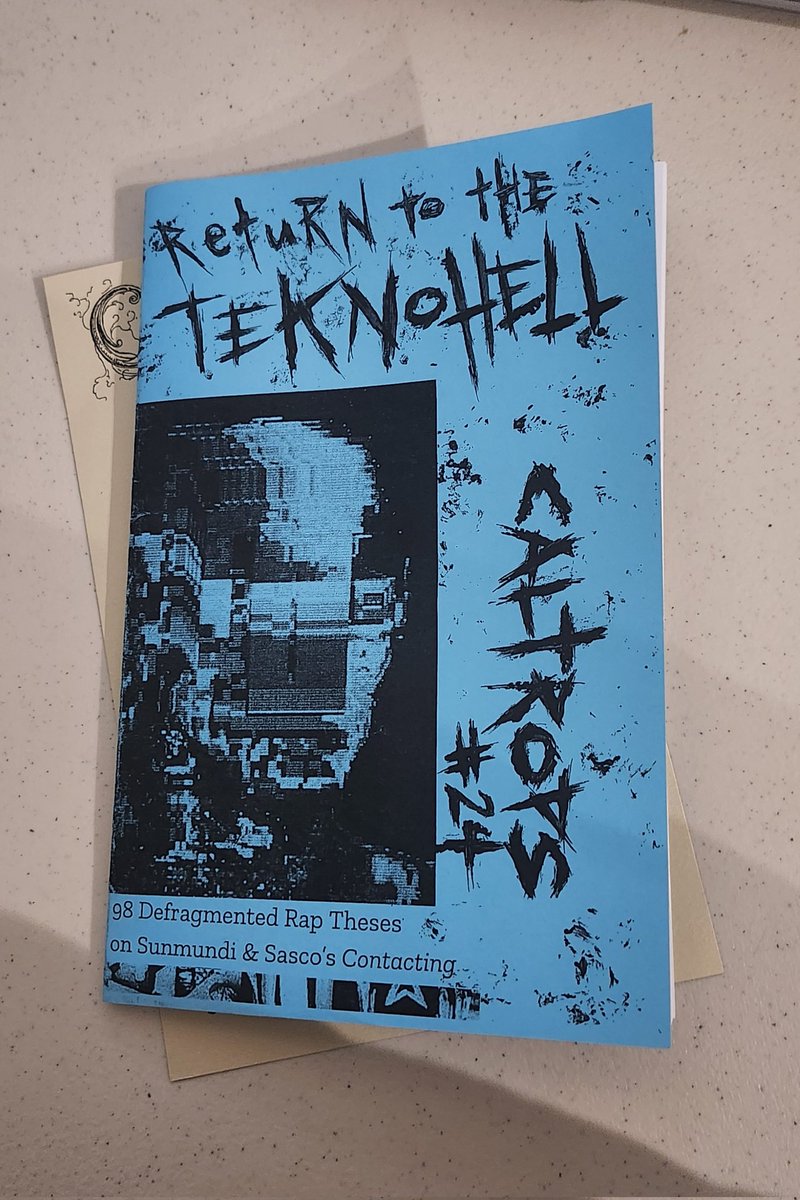 RetuRN to tHE
TEKNOHELL
CALTROPS
#24
98 Defragmented Rap Theses
on Sunmundi & Sasco's Contacting